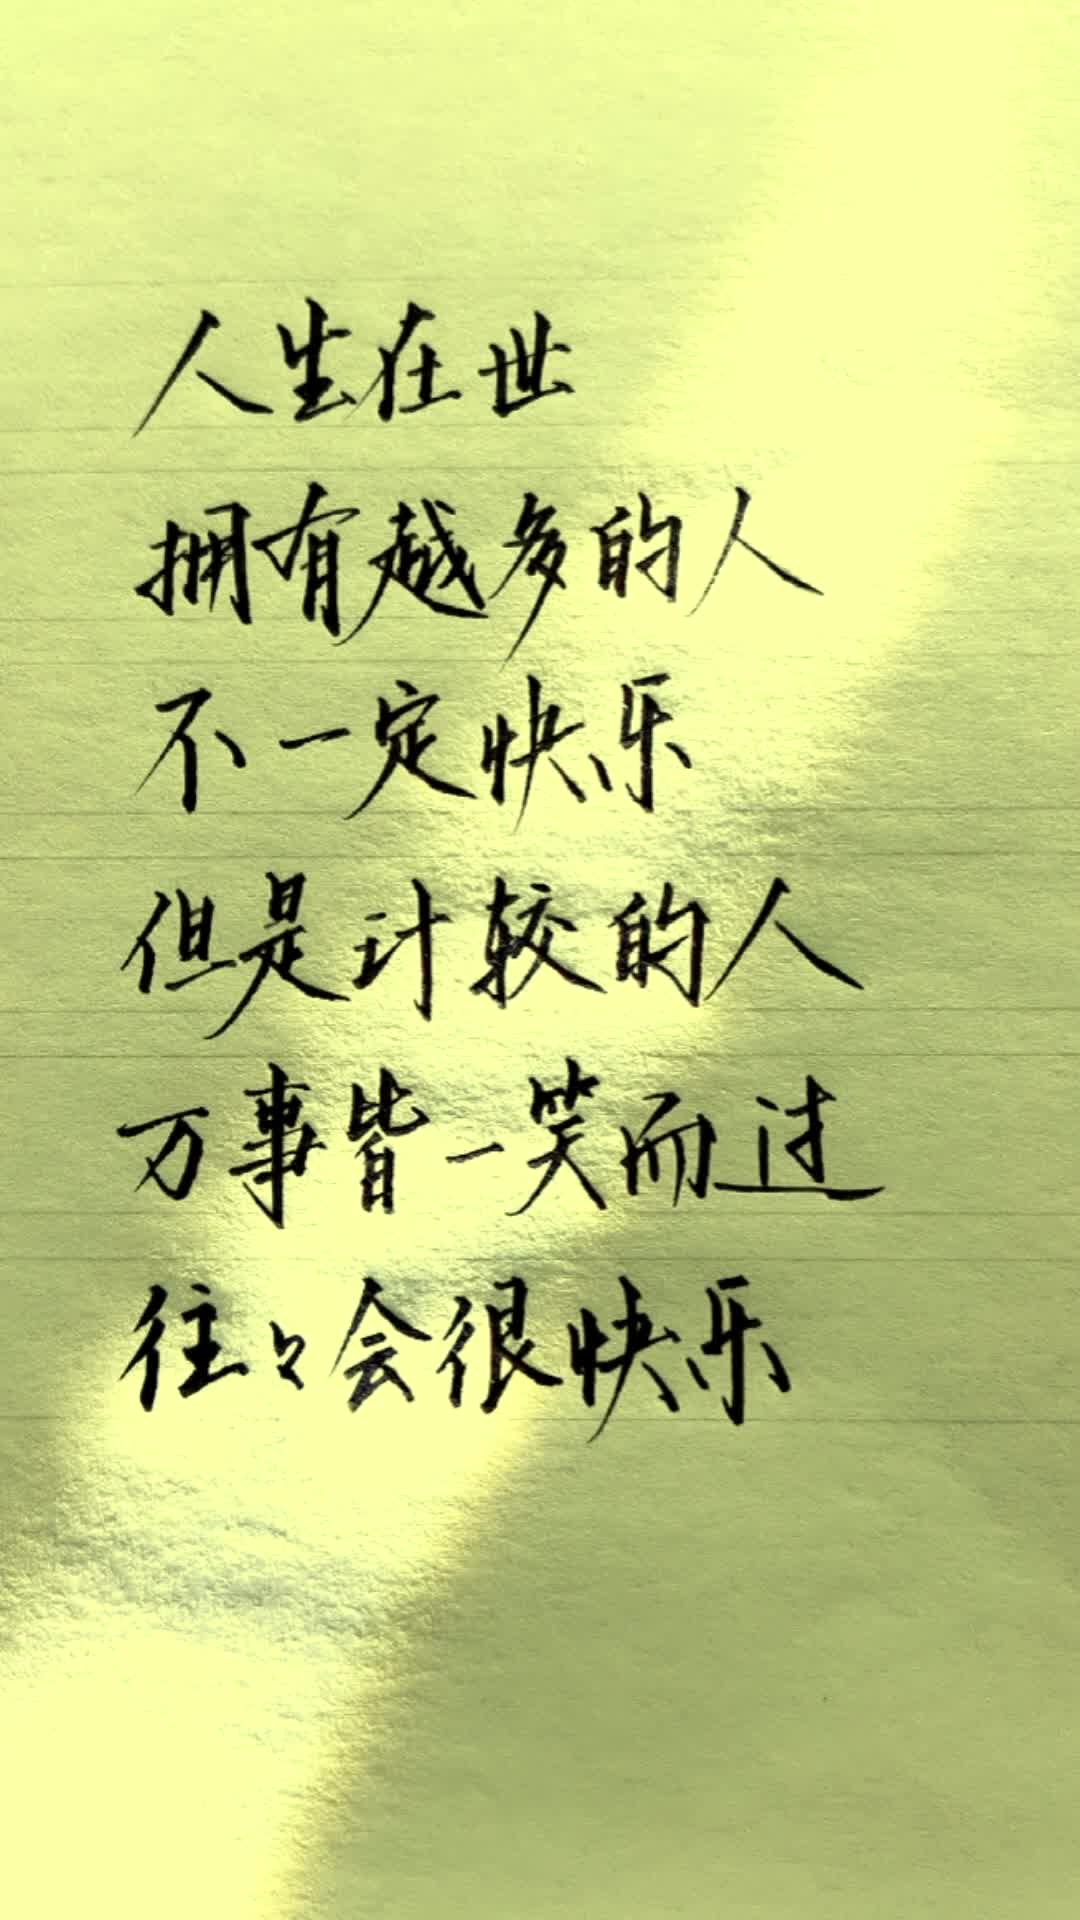 人生在世
拥有越多的人
不一定快乐
但是计较的人
万事皆一笑而过
往々会很快乐